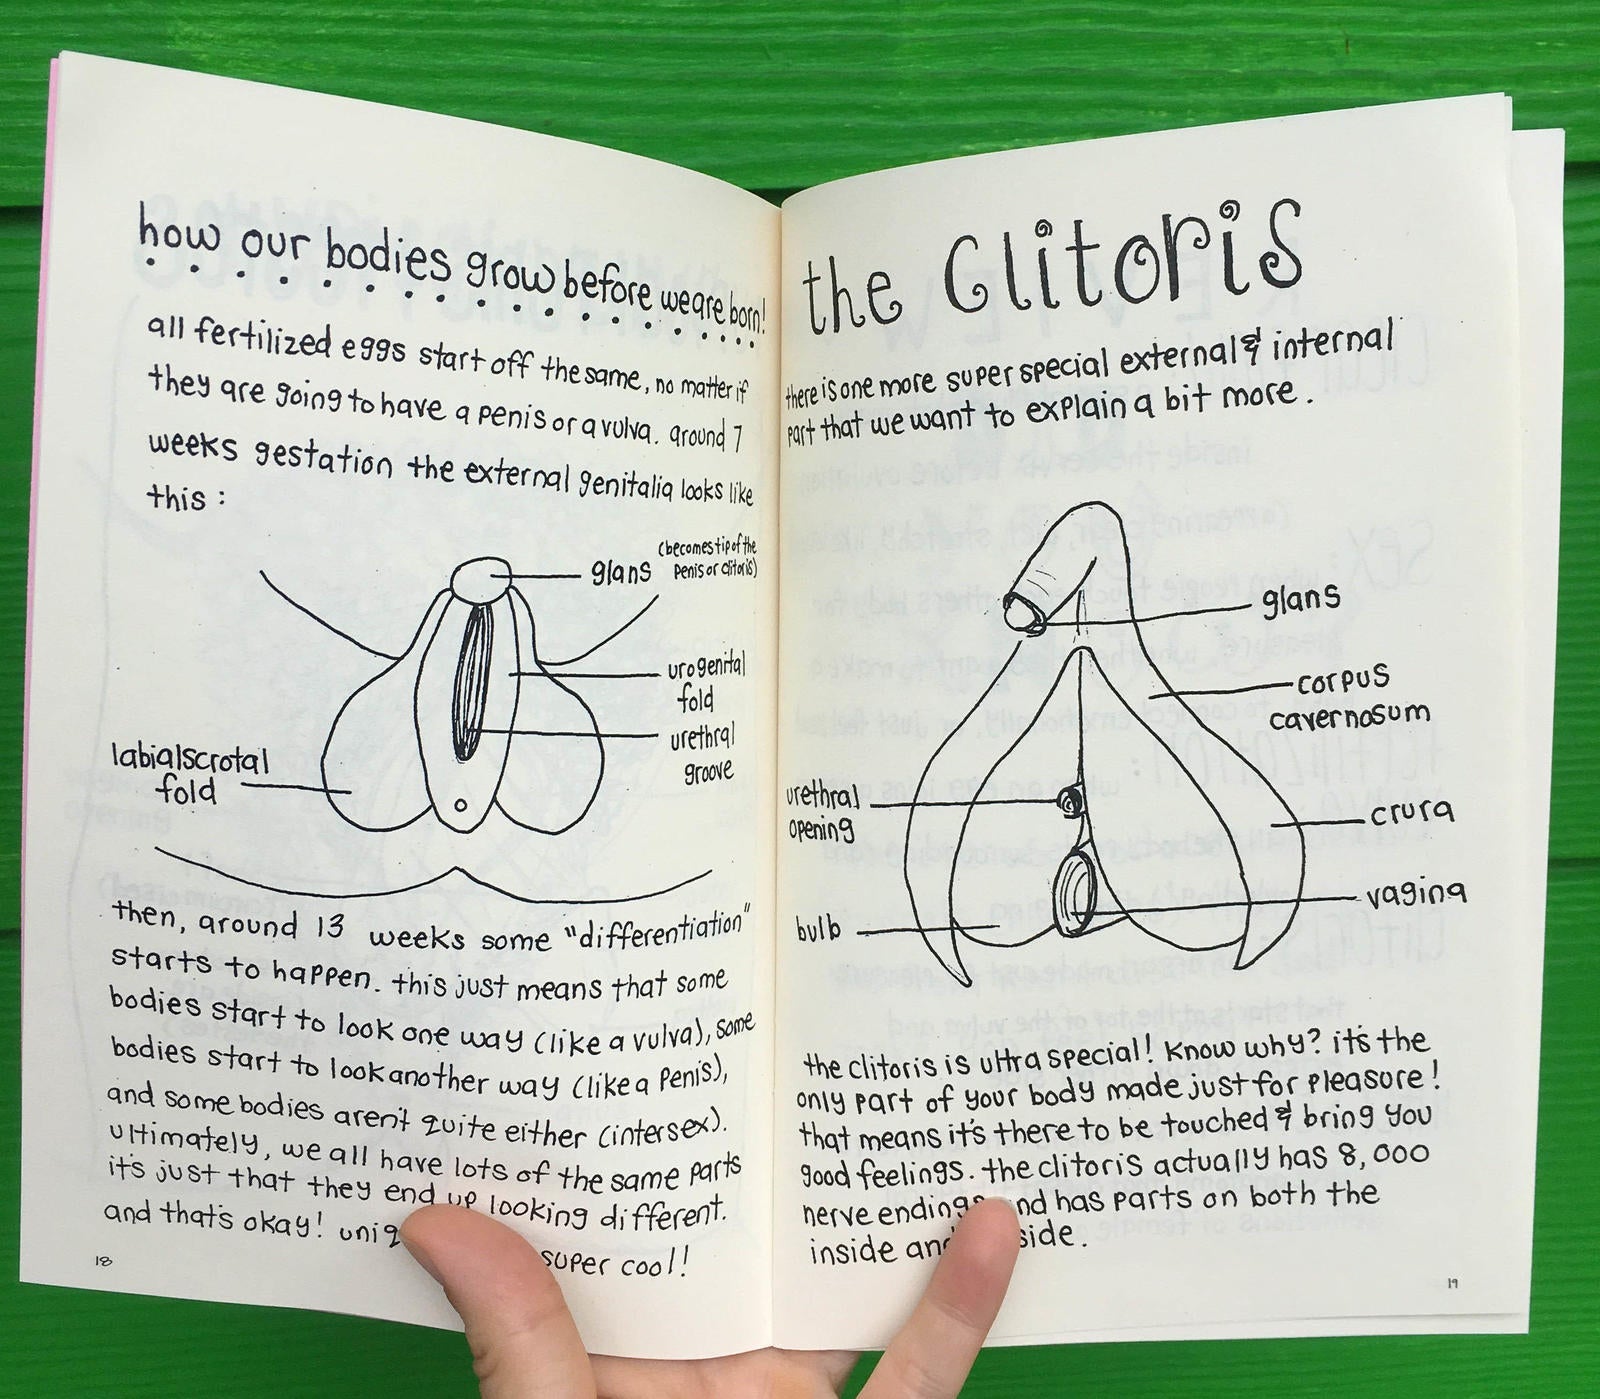 how our bodies grow before we are born!
all fertilized eggs start off the same, no matter if
they are going to have a penis or a vulva. around 7
weeks gestation the external genitalia looks like
this:
glans (becomes tip of the
penis or clitoris)
urogenital
fold
urethral
groove
labialscrotal
fold
then, around 13 weeks some "differentiation"
starts to happen. this just means that some
bodies start to look one way (like a vulva), some
bodies start to look another way (like a penis),
and some bodies aren't quite either (intersex).
ultimately, we all have lots of the same parts
it's just that they end up looking different.
and that's okay! super cool!
18
the Clitoris
there is one more super special external & internal
part that we want to explain a bit more.
glans
corpus
cavernosum
urethral
opening
crura
vagina
bulb
the clitoris is ultra special! Know why? it's the
only part of your body made just for pleasure!
that means it's there to be touched & bring you
good feelings. the clitoris actually has 8,000
nerve endings and has parts on both the
inside and
19